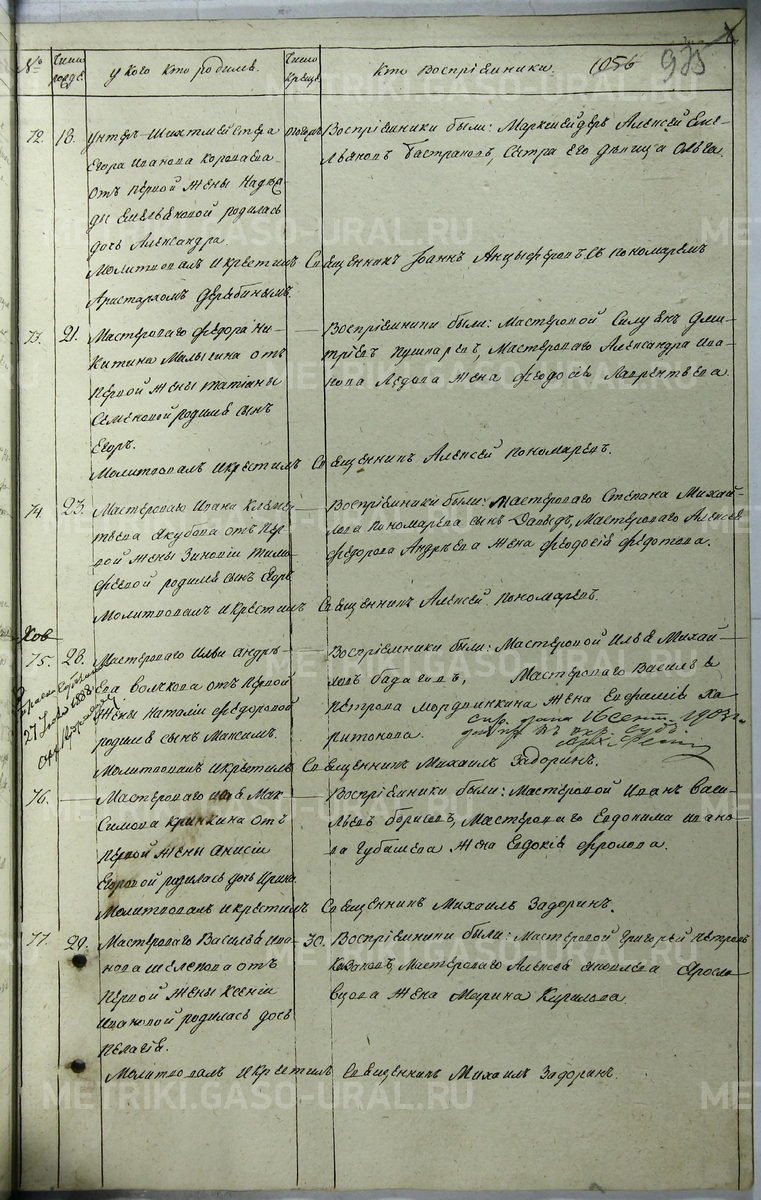 №
Число рожд.
у кого кто родился.
Число крещ.
Кто Воспріемники.
1056
975
72.
18.
Унтеръ-Шихтмейстера
Егора Иванова Короваева
отъ первой жены Надеж-
ды Емельяновой родилась
дочь Александра.
Воспріемники были: Маркшейдеръ Алексей Еме-
льяновъ Бастрановъ, Сестра его девица Ольга.
Молитвовалъ и крестилъ Священникъ Іоаннъ Анцыферовъ, съ пономаремъ
Аристархомъ Дерябинымъ.
73.
21.
Мастероваго Федора Ни-
китина Малыгина отъ
первой жены Татіаны
Семеновой родился сынъ
Егоръ.
Воспріемники были: Мастеровой Силуенъ Дми-
тріевъ Пушкаревъ, Мастероваго Александра Ива-
нова Ледова жена Феодосія Лаврентьева.
Молитвовалъ и крестилъ Священникъ Алексей Пономаревъ.
74
23.
Мастероваго Ивана Клемен-
тьева Якубова отъ пер-
вой жены Зиновіи Тимо-
феевой родился сынъ Егоръ
Воспріемники были: Мастероваго Степана Михай-
лова Пономарева сынъ Давыдъ, Мастероваго Алексея
Федорова Андреева жена Феодосія Федотова.
Молитвовалъ и крестилъ Священникъ Алексей Пономаревъ.
75.
28.
Мастероваго Ильи Андре-
ева Волкова отъ первой
жены Наталіи Федоровой
родился сынъ Максимъ.
Воспріемники были: Мастеровой Илья Михай-
ловъ Бадаговъ, Мастероваго Василья
Петрова Мордвинкина жена Евфимія Ха-
ритонова.
16 сент. 1903 г.
27 1888
Молитвовалъ и крестилъ Священникъ Михаилъ Задоринъ.
76.
Мастероваго Мак-
симова Кринкина отъ
первой жены Анисіи
Егоровой родилась дочь Ирина
Воспріемники были: Мастеровой Иванъ Васи-
льевъ Борисовъ, Мастероваго Евдокима Ивано-
ва Губашева жена Евдокія Фролова.
Молитвовалъ и крестилъ Священникъ Михаилъ Задоринъ.
77.
29.
Мастероваго Василья Ива-
нова Шелепова отъ
первой жены Ксеніи
Ивановой родилась дочь
Пелагія.
30.
Воспріемники были: Мастеровой Григорьей Петровъ
Казаковъ, Мастероваго Алексея Яковлева Яросла-
вцова жена Марина Кирилова.
Молитвовалъ и крестилъ Священникъ Михаилъ Задоринъ.
METRIKI.GASO-URAL.RU